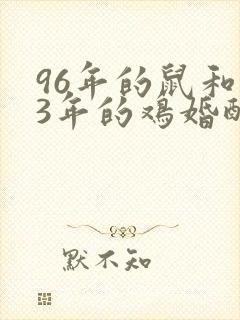 96年的鼠和
3年的鸡婚配
默不知